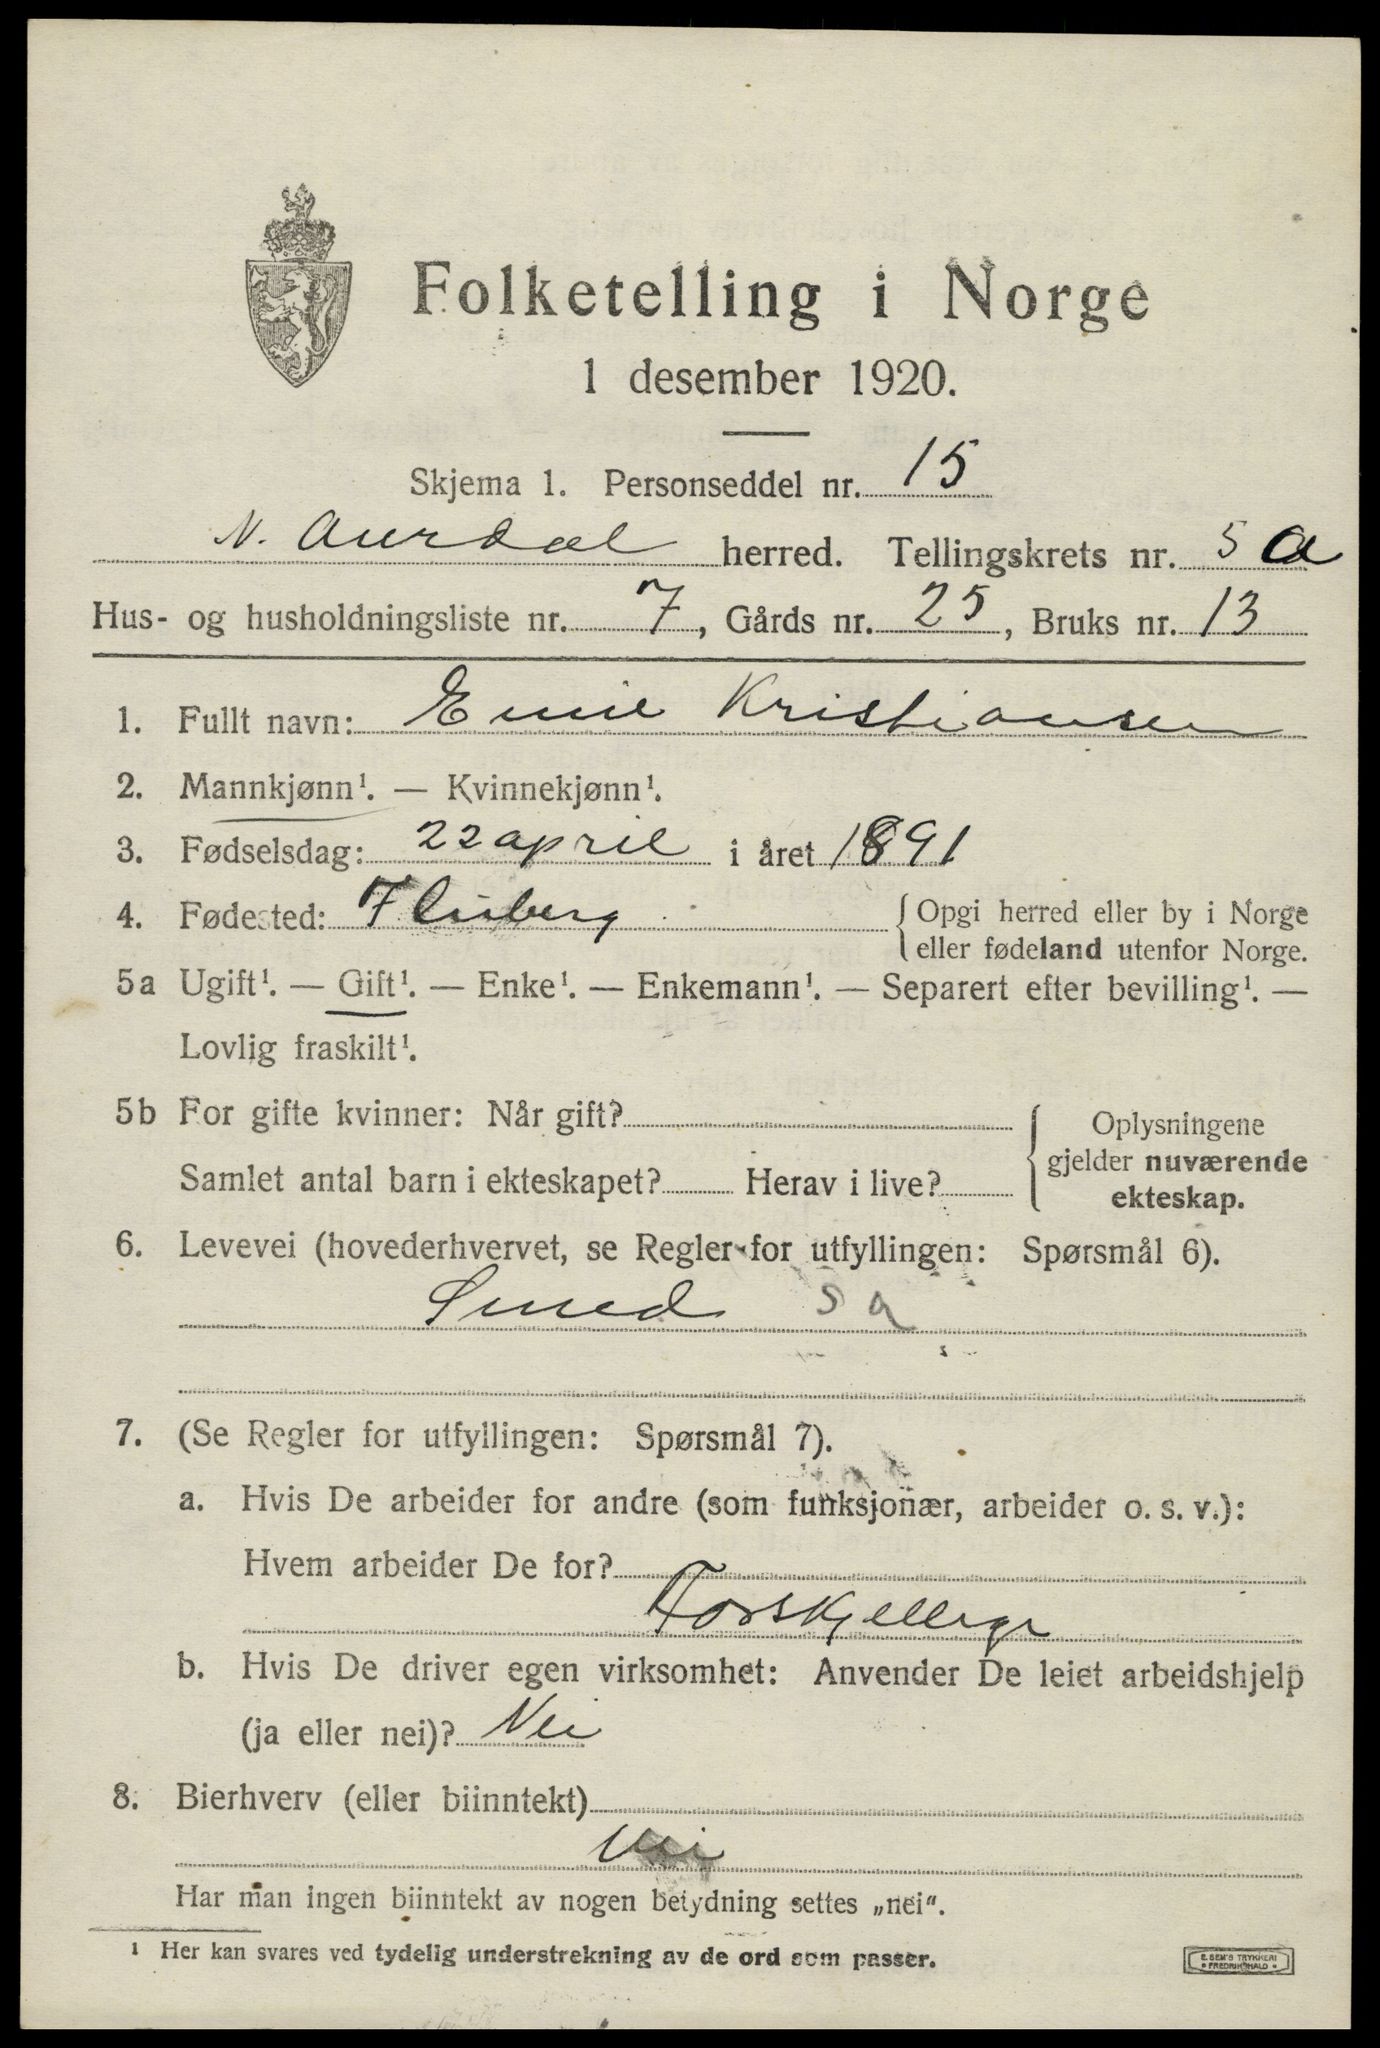 Folketelling i Norge
1 desember 1920.
Skjema 1. Personseddel nr. 15
N. Aurdal herred. Tellingskrets nr. 5 a
Hus- og husholdningsliste nr. 7, Gårds nr. 25, Bruks nr. 13
1. Fullt navn: Emil Kristiansen
2. Mannkjønn¹. — Kvinnekjønn¹.
3. Fødselsdag: 22 april i året 1891
4. Fødested: Fluberg { Opgi herred eller by i Norge
eller fødeland utenfor Norge.
5a Ugift¹. — Gift¹. — Enke¹. — Enkemann¹. — Separert efter bevilling¹. —
Lovlig fraskilt¹.
5b For gifte kvinner: Når gift?
Samlet antal barn i ekteskapet? Herav i live?
Oplysningene
gjelder nuværende
ekteskap.
6. Levevei (hovederhvervet, se Regler for utfyllingen: Spørsmål 6).
Smed s a
7. (Se Regler for utfyllingen: Spørsmål 7).
a. Hvis De arbeider for andre (som funksjonær, arbeider o. s. v.):
Hvem arbeider De for?
Forskjellige
b. Hvis De driver egen virksomhet: Anvender De leiet arbeidshjelp
(ja eller nei)? Nei
8. Bierhverv (eller biinntekt)
Nei
Har man ingen biinntekt av nogen betydning settes „nei“.
¹ Her kan svares ved tydelig understrekning av de ord som passer.
E. SEM'S TRYKKERI
FREDRIKSHALD